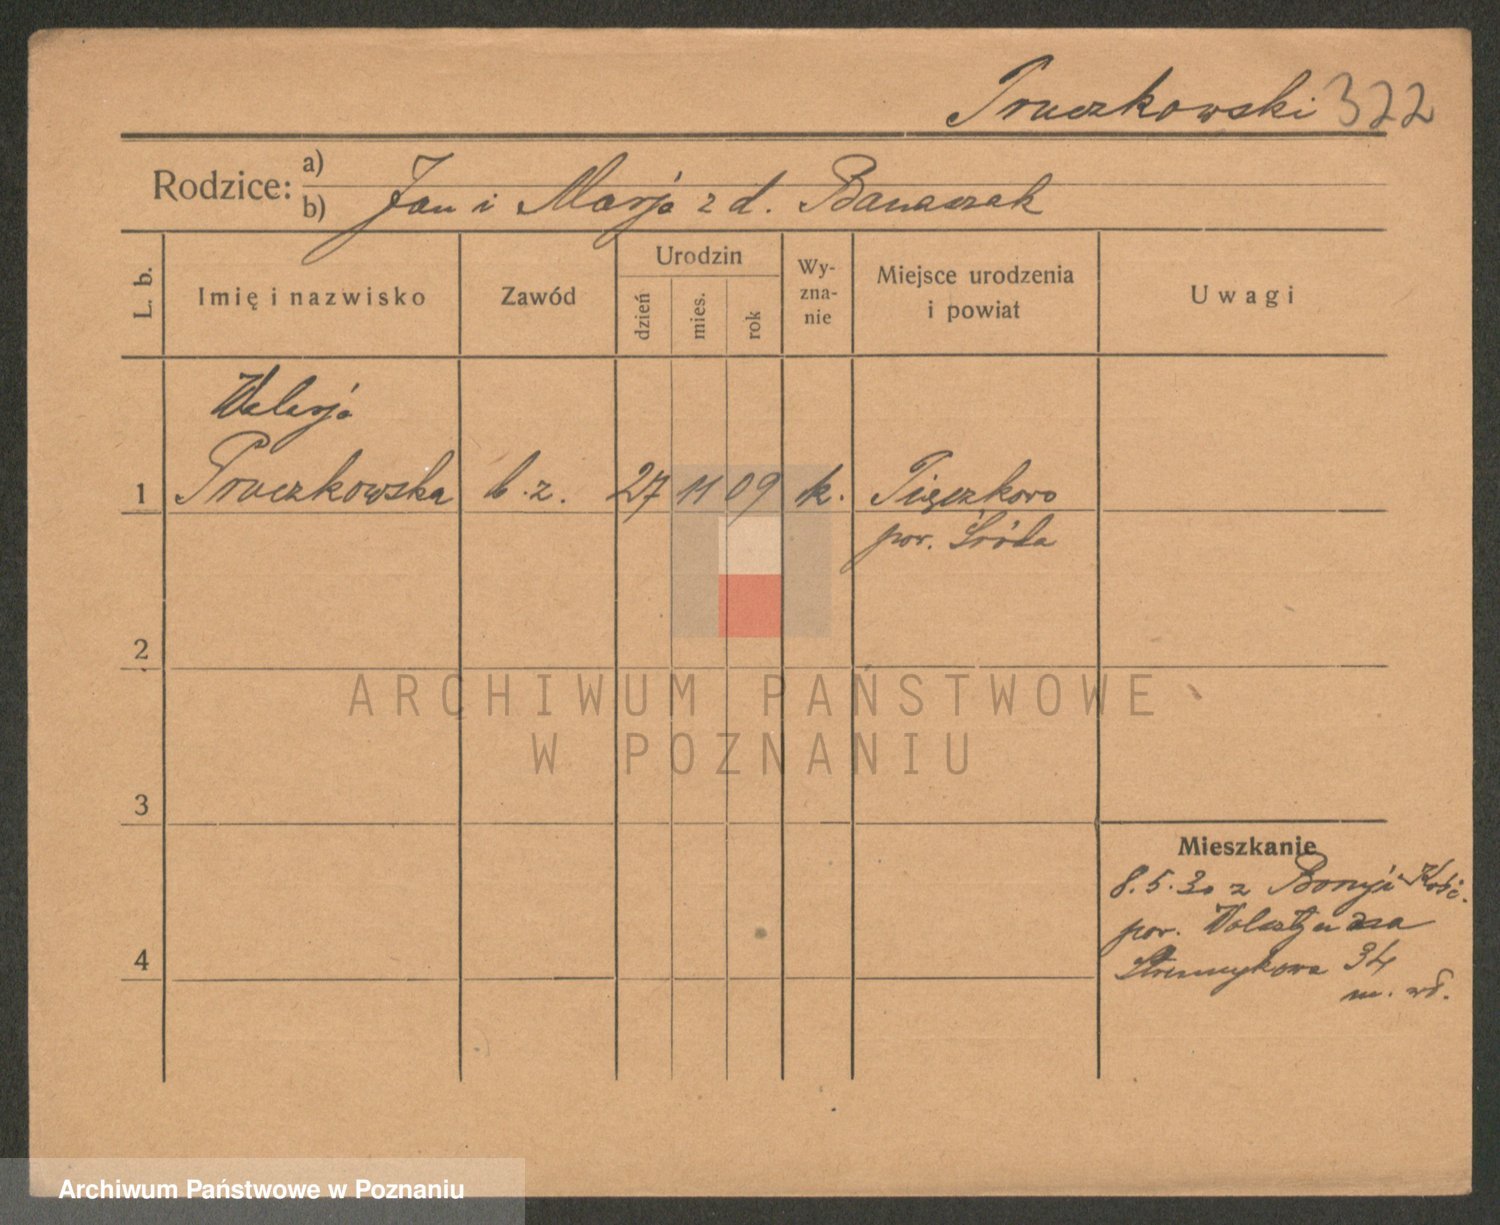 Pruczkowski 322
Rodzice: a)
b) Jan i Marja z d. Banaszak
L. b.
Imię i nazwisko
Zawód
Urodzin
dzień
mies.
rok
Wy-
zna-
nie
Miejsce urodzenia
i powiat
Uwagi
Walerja
1 Pruczkowska b. z. 27 11 09 k. Pięczkowo
pow. Środa
2
ARCHIWUM PAŃSTWOWE
W POZNANIU
3
Mieszkanie
8.5.30 z
pow. Wolsztyn
34
4
Archiwum Państwowe w Poznaniu